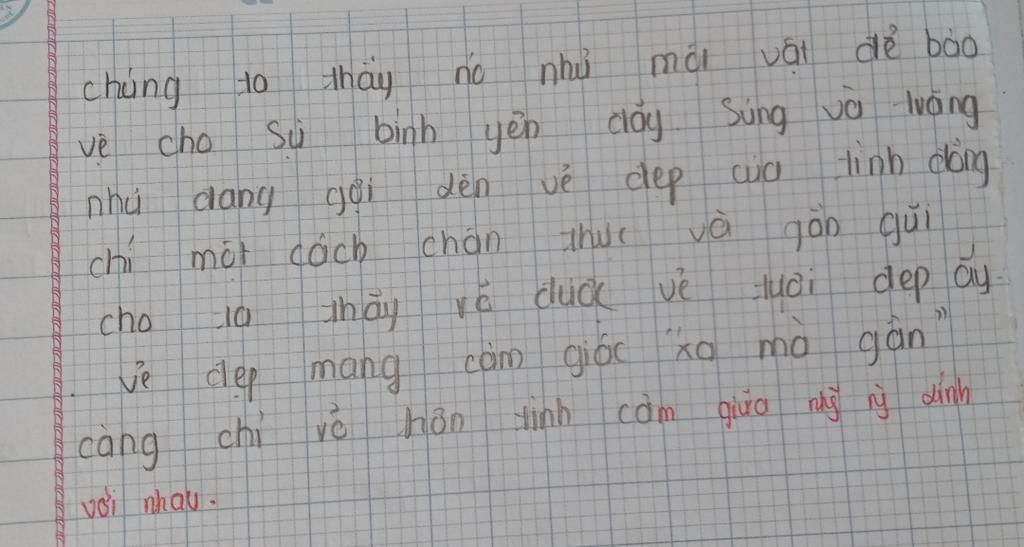 chúng ta thấy nó như mỗi vật để bảo
vệ cho sự bình yên đấy. Súng và trăng
như đang gợi đến vẻ đẹp của tình đồng
chí một cách chân thực và gần gũi
cho ta thấy về được vẻ tươi đẹp ấy.
vẻ đẹp mang cảm giác "xa mà gần"
càng chỉ rõ hơn tình cảm giữa dính
với nhau.